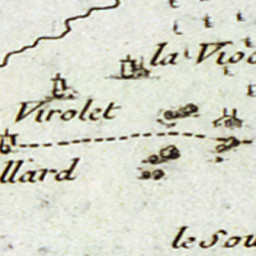 la Vio
Virolet
llard
le Sou